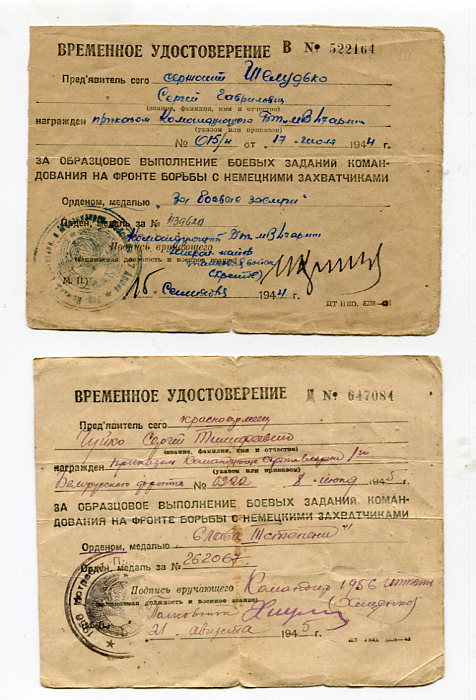 ВРЕМЕННОЕ УДОСТОВЕРЕНИЕ В № 522164
Пред'явитель сего сержант Шелудько
Сергей Гаврилович
(звание, фамилия, имя и отчество)
награжден приказом Командующего БТ и МВ
(указом или приказом)
№ 015/н от 17 июля 1944 г.
ЗА ОБРАЗЦОВОЕ ВЫПОЛНЕНИЕ БОЕВЫХ ЗАДАНИЙ КОМАН-
ДОВАНИЯ НА ФРОНТЕ БОРЬБЫ С НЕМЕЦКИМИ ЗАХВАТЧИКАМИ
Орденом, медалью "За боевые заслуги"
Орден, медаль за №
Командующий БТ и МВ
Подпись вручающего
(занимаемая должность и воинское звание)
М. П.
сентября 1944 г.
ВРЕМЕННОЕ УДОСТОВЕРЕНИЕ Д № 647084
Пред'явитель сего красноармеец
Сергей Тимофеевич
(звание, фамилия, имя и отчество)
награжден Приказом Командующего Артиллерией 1го
(указом или приказом)
Белорусского фронта № 8 июня 1945 г.
ЗА ОБРАЗЦОВОЕ ВЫПОЛНЕНИЕ БОЕВЫХ ЗАДАНИЙ КОМАН-
ДОВАНИЯ НА ФРОНТЕ БОРЬБЫ С НЕМЕЦКИМИ ЗАХВАТЧИКАМИ
Орденом, медалью "Слава III степени"
Орден, медаль за № 262067
Подпись вручающего Командир 1956
(занимаемая должность и воинское звание)
Полковник
21 августа 1945 г.